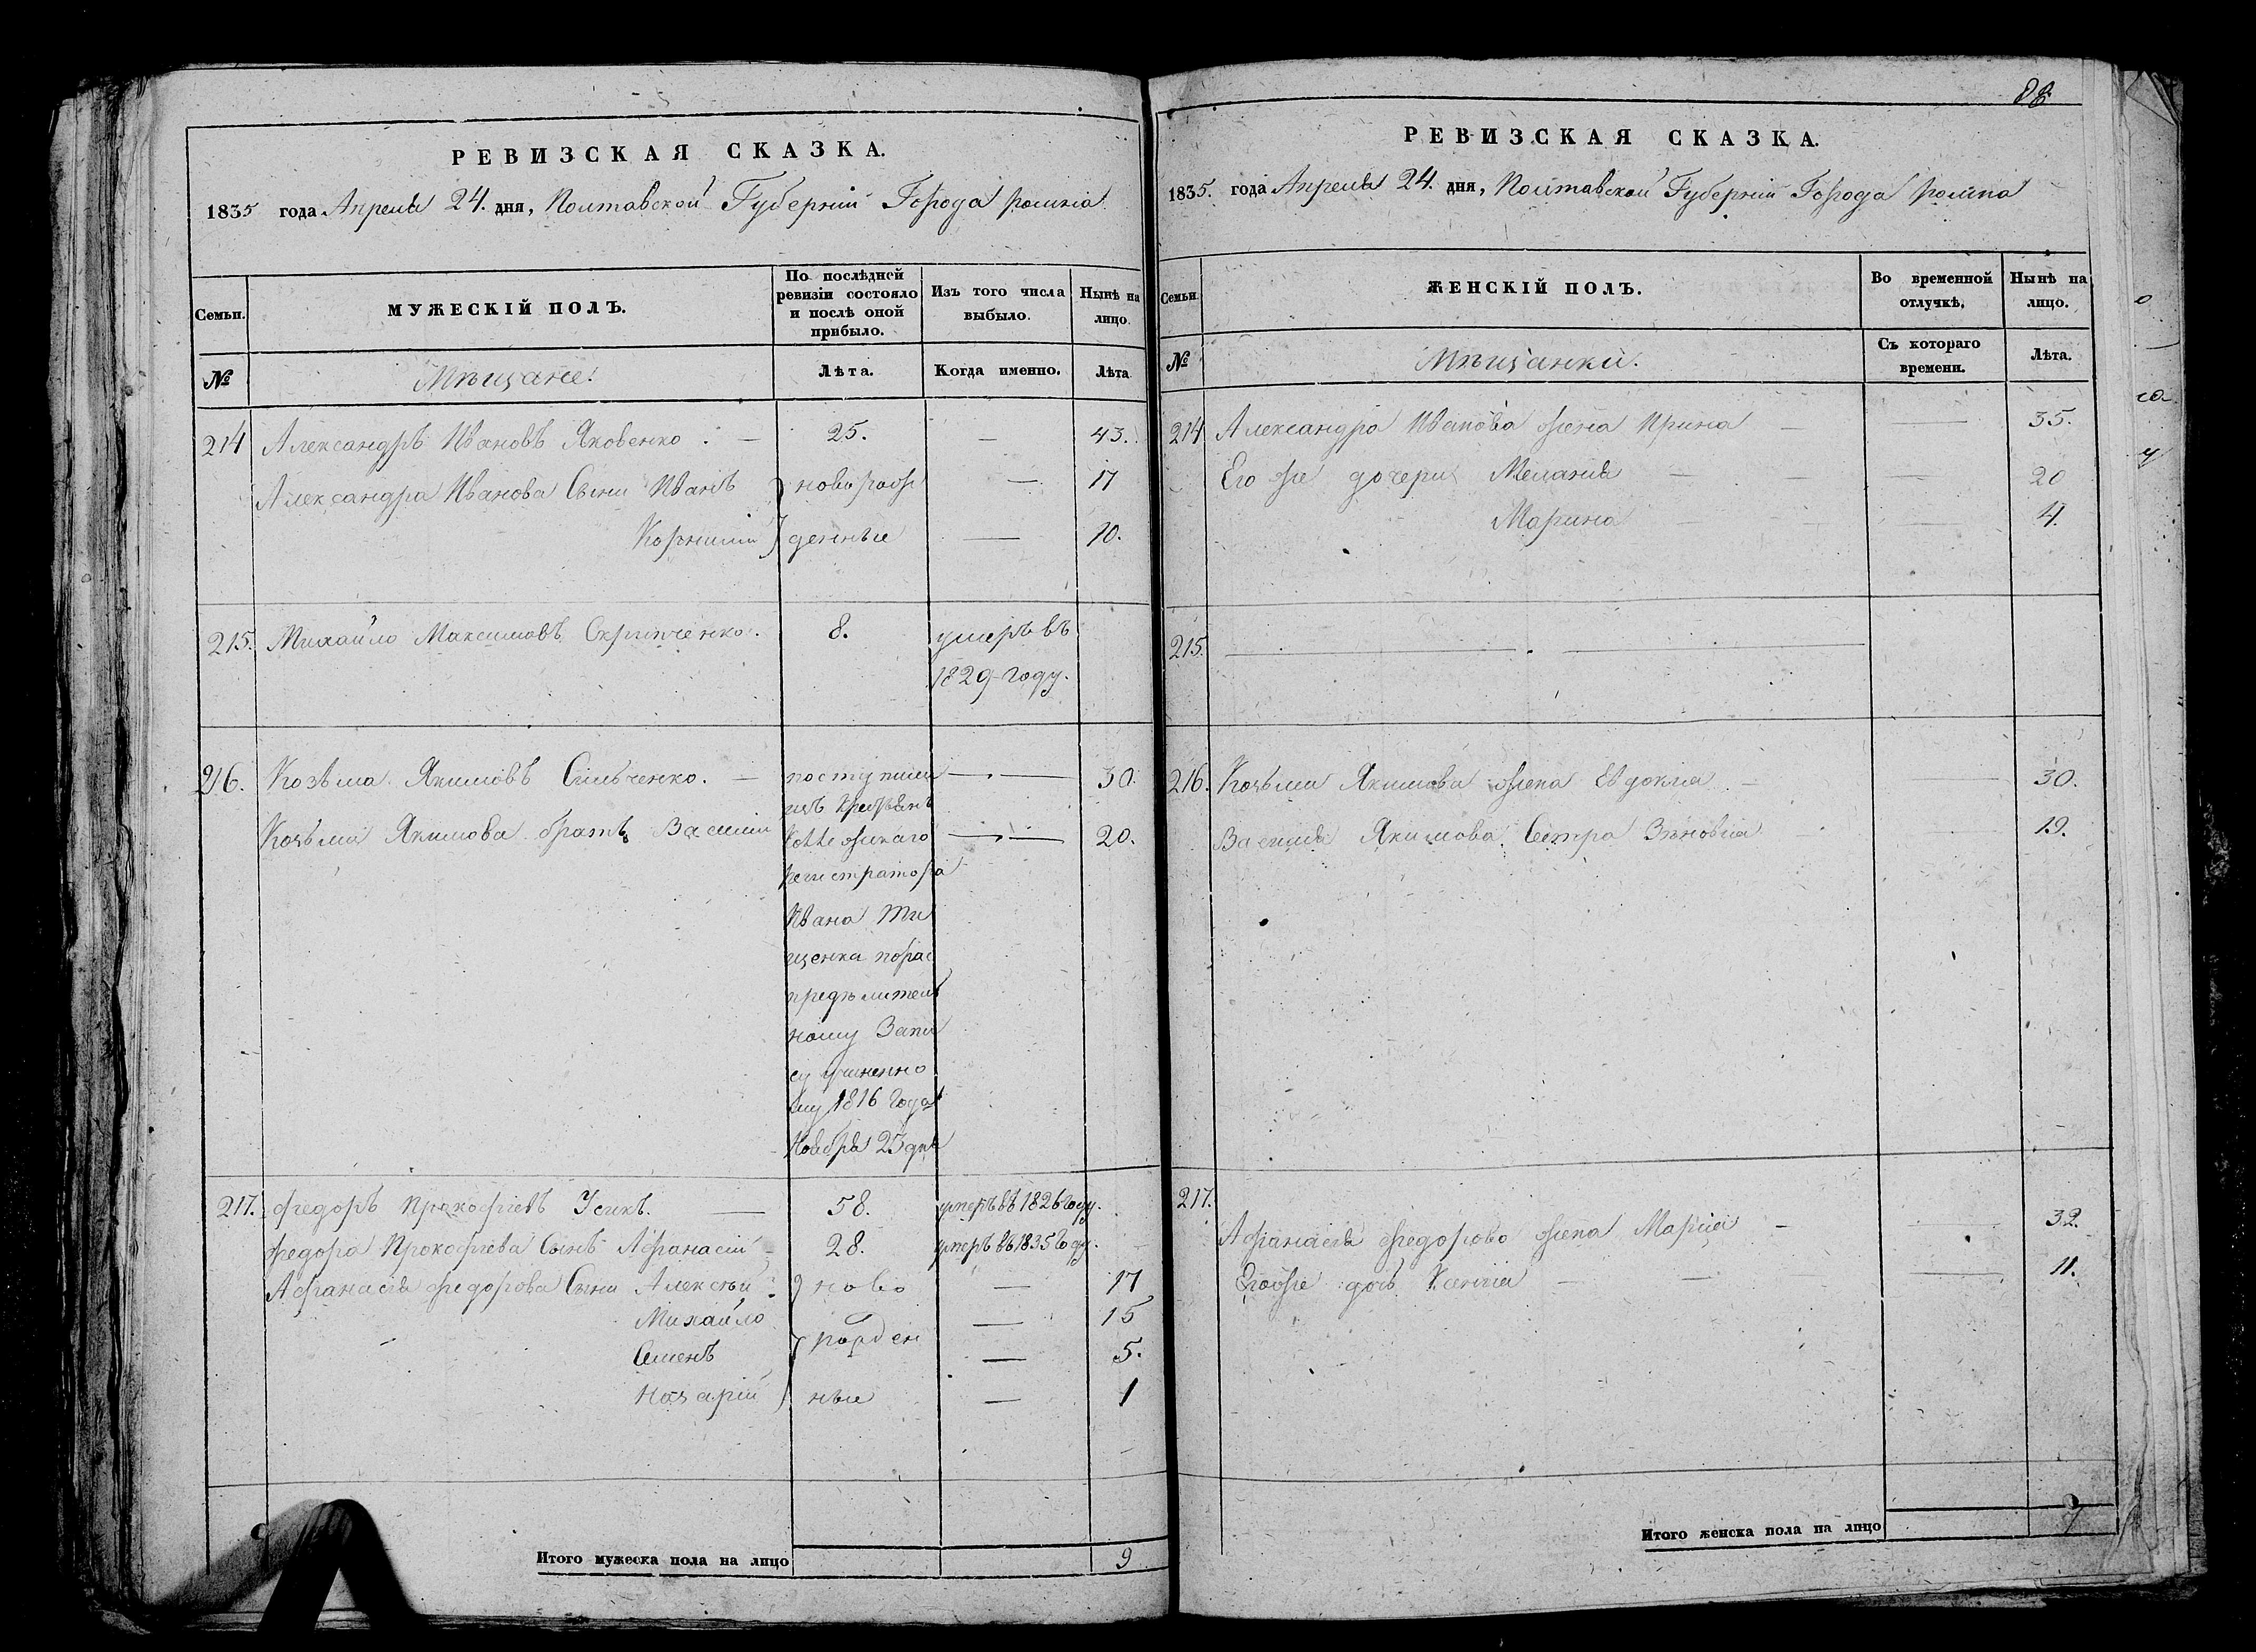 РЕВИЗСКАЯ СКАЗКА.
1835 года Апреля 24. дня, Полтавской Губерніи Города ромна
Семьи.
МУЖЕСКІЙ ПОЛЪ.
По послѣдней ревизіи состояло и послѣ оной прибыло.
Изъ того числа выбыло.
Нынѣ на лицо.
№
Мѣщане.
Лѣта.
Когда именно.
Лѣта
214 Александръ Ивановъ Яковенко. — 25. — 43.
Александра Иванова Сыны Иванъ новорож — 17
Корнилій денные — 10.
215. Михайло Максимовъ Скрипченко. 8. умеръ въ
1829 году.
216. Козьма Якимовъ Сильченко. — поступили — 30.
изъ крестьянъ
Козьмы Якимова братъ Василій Коллежскаго — 20.
регистратора
Ивана Ти
щенка пораз
предѣлител
ному Запи
су учиненно
му 1816 Года
Ноября 23 дня
217. Федоръ Прокофіевъ Усикъ. — 58. умеръ въ 1826 году.
Федора Прокофіева Сынъ Афанасій 28. умеръ въ 1835 году.
Афанасія Федорова Сыны Алексѣй ново — 17
Михайло — 15
рожден
Семенъ — 5.
Назарій ные — 1
Итого мужеска пола на лицо 9
88
РЕВИЗСКАЯ СКАЗКА.
1835. года Апреля 24. дня, Полтавской Губерніи Города ромна
Семьи.
ЖЕНСКІЙ ПОЛЪ.
Во временной отлучкѣ,
Нынѣ на лицо.
№
Мѣщанки.
Съ котораго времени.
Лѣта.
214 Александра Иванова жена Ирина — 35.
Его же дочери Меланія — 20
Марина — 4.
215.
216. Козьмы Якимова жена Евдокія — 30.
Василія Якимова Сестра Зѣновія — 19.
217.
Афанасія Федорова жена Марія — 32.
Егоже дочь Ксенія — 11.
Итого женска пола на лицо 7